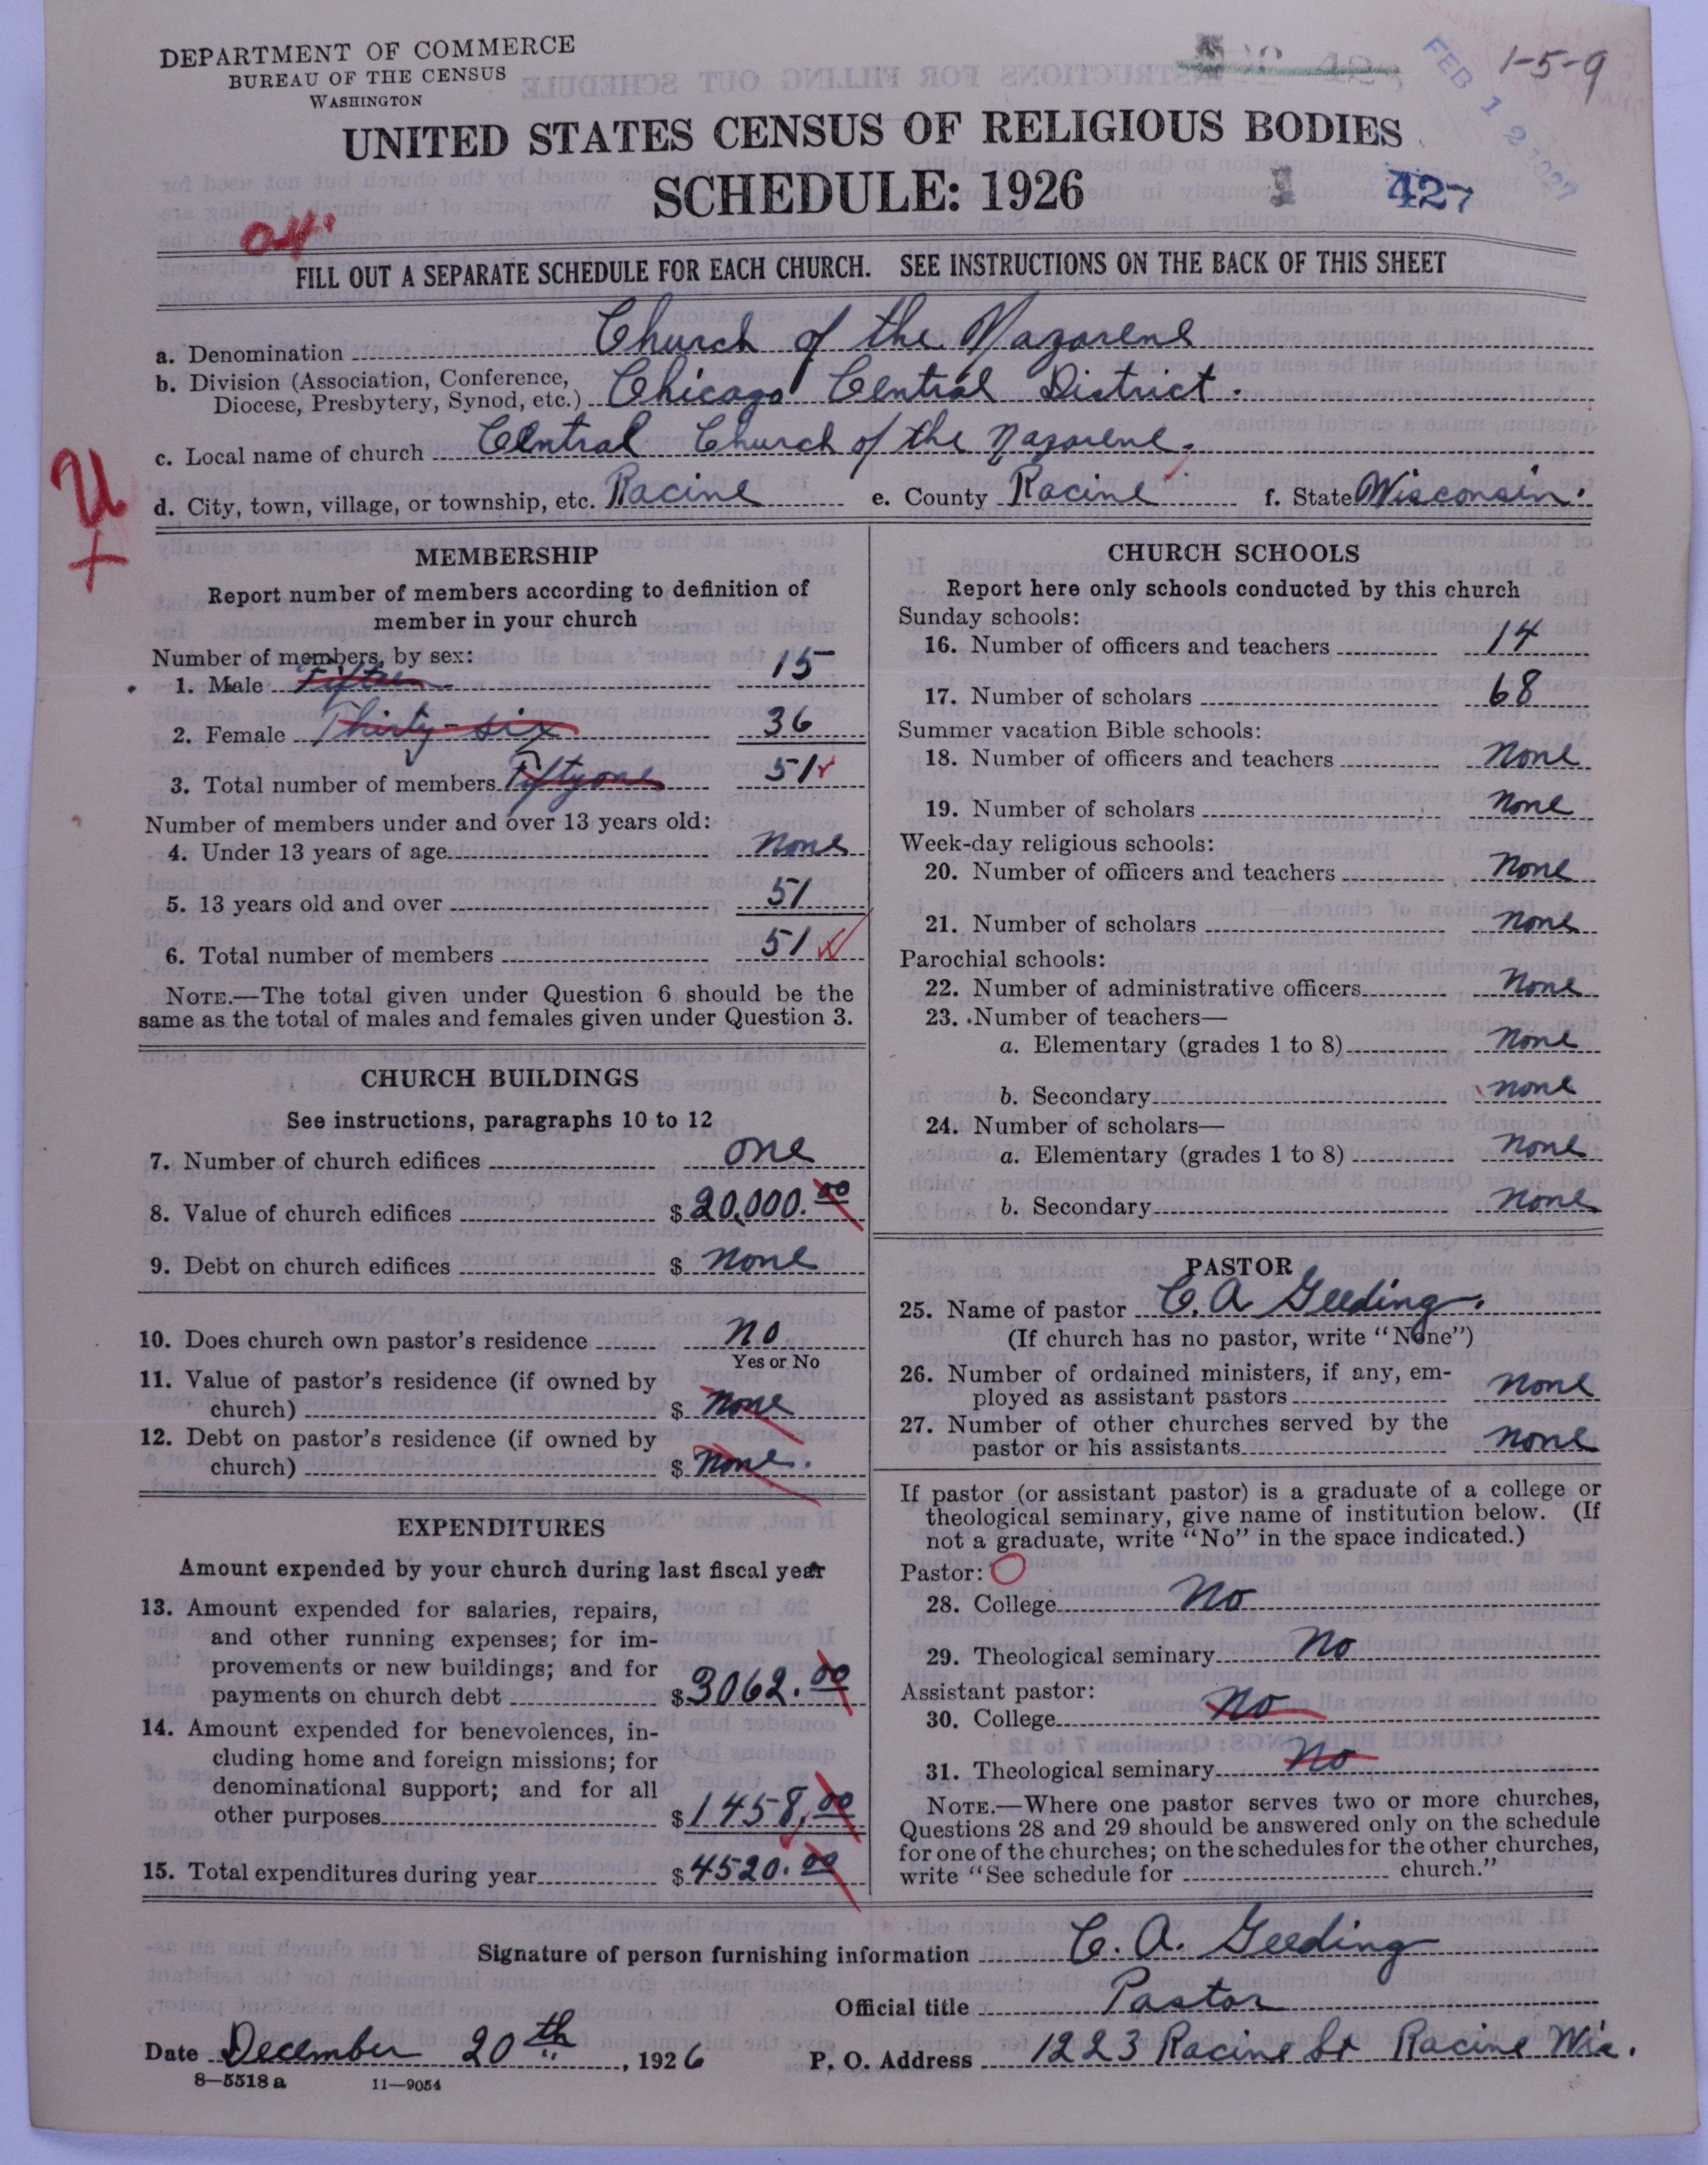 DEPARTMENT OF COMMERCE
BUREAU OF THE CENSUS
WASHINGTON
1-5-9
FEB 12 1927
UNITED STATES CENSUS OF RELIGIOUS BODIES
SCHEDULE: 1926
427
FILL OUT A SEPARATE SCHEDULE FOR EACH CHURCH. SEE INSTRUCTIONS ON THE BACK OF THIS SHEET
a. Denomination Church of the Nazarene
b. Division (Association, Conference, Diocese, Presbytery, Synod, etc.) Chicago Central District.
c. Local name of church Central Church of the Nazarene.
d. City, town, village, or township, etc. Racine e. County Racine f. State Wisconsin.
U
+
MEMBERSHIP
Report number of members according to definition of
member in your church
Number of members, by sex:
1. Male Fifteen 15
2. Female Thirty-six 36
3. Total number of members Fiftyone 51
Number of members under and over 13 years old:
4. Under 13 years of age None
5. 13 years old and over 51
6. Total number of members 51
NOTE.—The total given under Question 6 should be the
same as the total of males and females given under Question 3.
CHURCH BUILDINGS
See instructions, paragraphs 10 to 12
7. Number of church edifices one
8. Value of church edifices $20,000.00
9. Debt on church edifices $ None
10. Does church own pastor's residence no
Yes or No
11. Value of pastor's residence (if owned by
church) $ None
12. Debt on pastor's residence (if owned by
church) $ None.
EXPENDITURES
Amount expended by your church during last fiscal year
13. Amount expended for salaries, repairs,
and other running expenses; for im-
provements or new buildings; and for
payments on church debt $3062.00
14. Amount expended for benevolences, in-
cluding home and foreign missions; for
denominational support; and for all
other purposes $1458.00
15. Total expenditures during year $4520.00
CHURCH SCHOOLS
Report here only schools conducted by this church
Sunday schools:
16. Number of officers and teachers 14
17. Number of scholars 68
Summer vacation Bible schools:
18. Number of officers and teachers None
19. Number of scholars None
Week-day religious schools:
20. Number of officers and teachers None
21. Number of scholars None
Parochial schools:
22. Number of administrative officers None
23. Number of teachers—
a. Elementary (grades 1 to 8) None
b. Secondary None
24. Number of scholars—
a. Elementary (grades 1 to 8) None
b. Secondary None
PASTOR
25. Name of pastor C. A Geeding.
(If church has no pastor, write "None")
26. Number of ordained ministers, if any, em-
ployed as assistant pastors None
27. Number of other churches served by the
pastor or his assistants None
If pastor (or assistant pastor) is a graduate of a college or
theological seminary, give name of institution below. (If
not a graduate, write "No" in the space indicated.)
Pastor:
28. College No
29. Theological seminary No
Assistant pastor:
30. College No
31. Theological seminary No
NOTE.—Where one pastor serves two or more churches,
Questions 28 and 29 should be answered only on the schedule
for one of the churches; on the schedules for the other churches,
write "See schedule for church."
Signature of person furnishing information C. A. Geeding
Official title Pastor
Date December 20th, 1926 P. O. Address 1223 Racine St Racine Wis.
8-5518a 11-9054